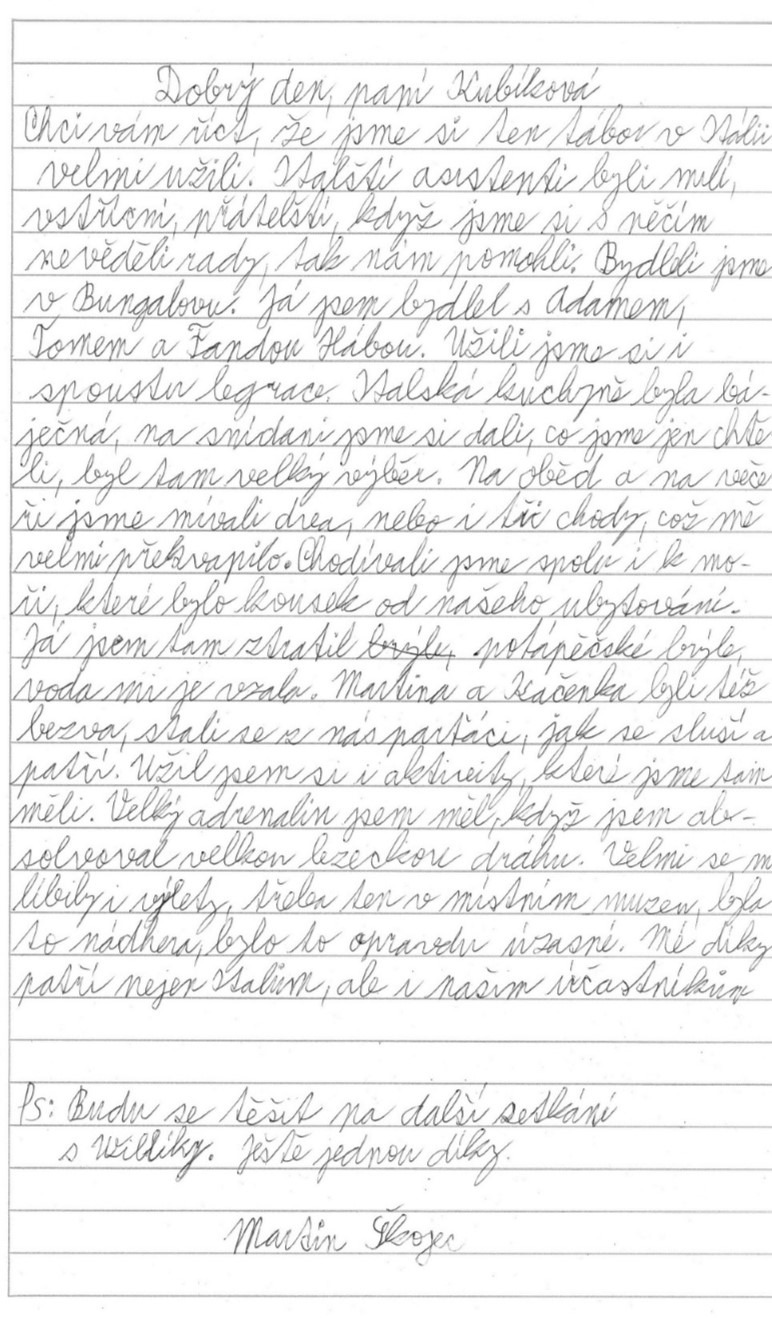 Dobrý den, paní Kubíková
Chci vám říct, že jsme si ten tábor v Itálii
velmi užili. Italští asistenti byli milí,
vstřícní, přátelští, když jsme si s něčím
nevěděli rady, tak nám pomohli. Bydleli jsme
v Bungalovu. Já jsem bydlel s Adamem,
Tomem a Fandou Hábou. Užili jsme si i
spoustu legrace. Italská kuchyně byla bá-
ječná, na snídani jsme si dali, co jsme jen chtě
li, byl tam velký výběr. Na oběd a na veče
ři jsme mívali dva, nebo i tři chody, což mě
velmi překvapilo. Chodívali jsme spolu i k mo-
ři, které bylo kousek od našeho ubytování.
Já jsem tam ztratil brýle, potápěčské brýle,
voda mi je vzala. Martina a Káčenka byli též
bezva, stali se z nás parťáci, jak se sluší a
patří. Užil jsem si i aktivity, které jsme tam
měli. Velký adrenalin jsem měl, když jsem ab-
solvoval velkou lezeckou dráhu. Velmi se m
líbily i výlety, třeba ten v místním muzeu, byla
to nádhera, bylo to opravdu úžasné. Mé díky
patří nejen Italům, ale i našim účastníkům
Ps: Budu se těšit na další setkání
s Willíky. Ještě jednou díky.
Martin Škojec